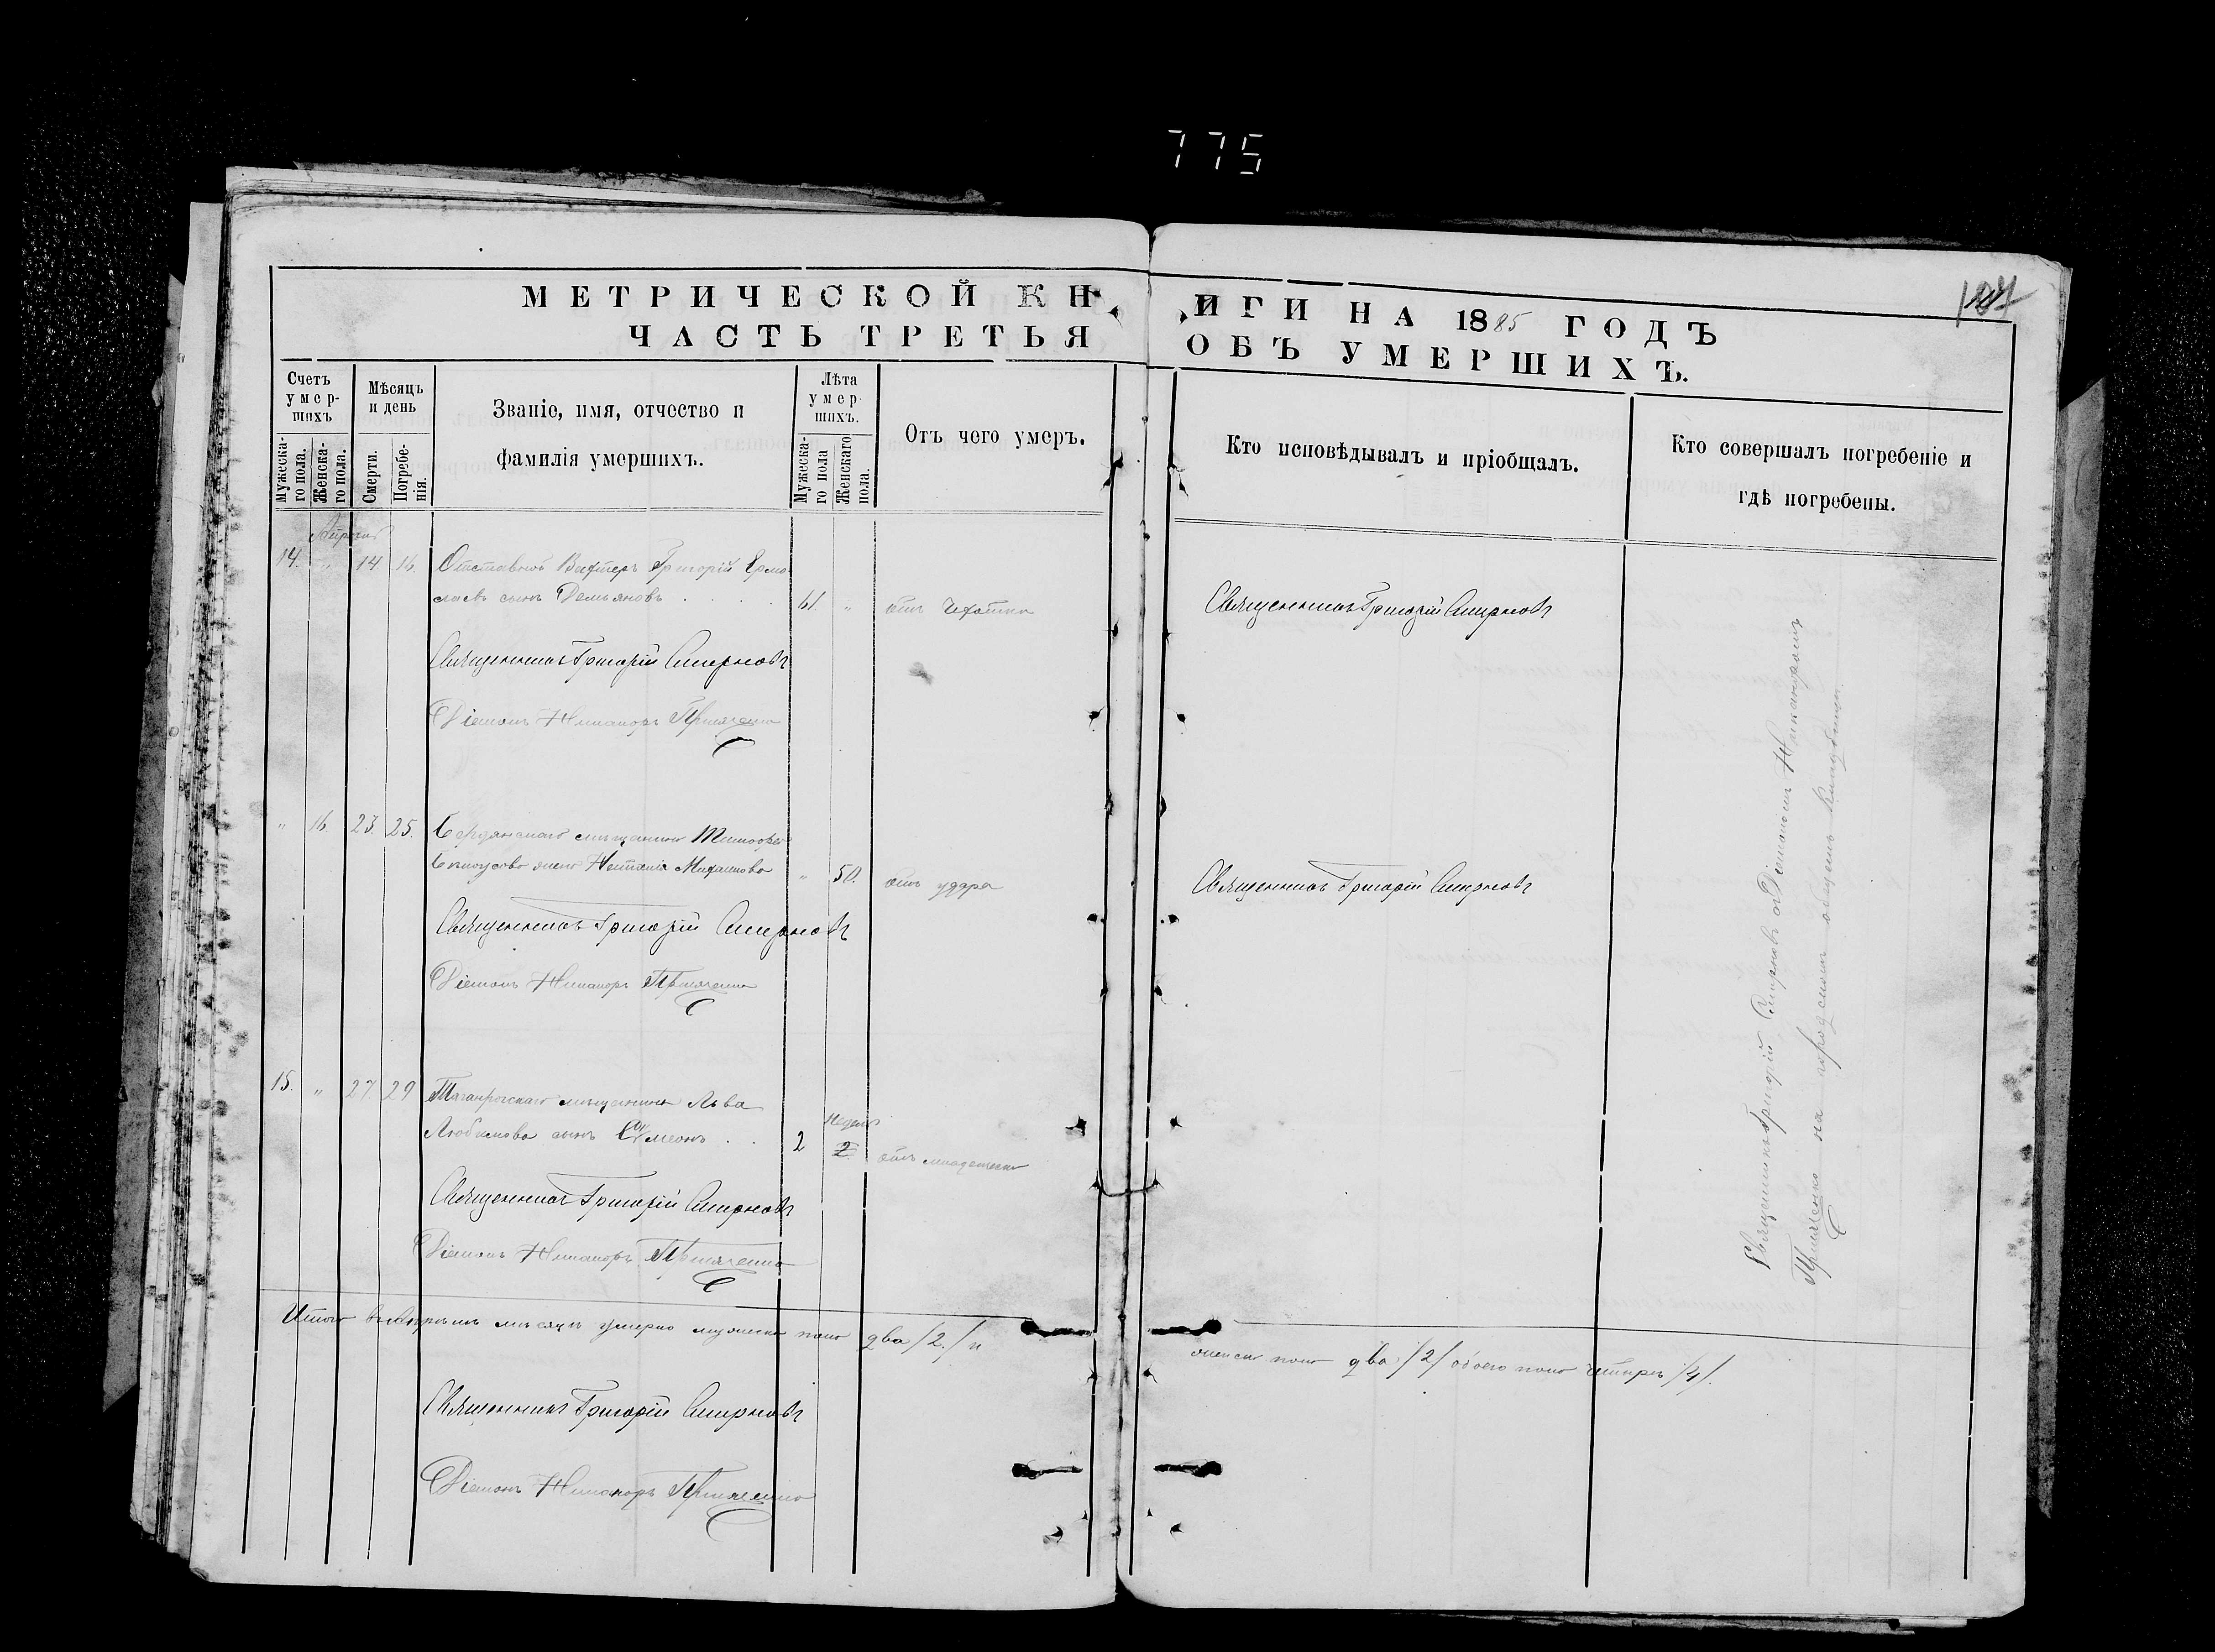 775
МЕТРИЧЕСКОЙ КНИГИ НА 1885 ГОДЪ
ЧАСТЬ ТРЕТЬЯ ОБЪ УМЕРШИХЪ.
Счетъ умер-шихъ
Мужеска-го пола.
Женска-го пола.
Мѣсяцъ и день
Смерти.
Погребе-нія.
Званіе, имя, отчество и
фамилія умершихъ.
Лѣта умер-шихъ.
Мужеска-го пола
Женскаго пола.
Отъ чего умеръ.
Кто исповѣдывалъ и пріобщалъ.
Кто совершалъ погребеніе и
гдѣ погребены.
14. " 14 16. Отставной Вахтеръ Григорій Ермо
лаевъ сынъ Демьяновъ 61. " отъ Чахотки
Священникъ Григорій Смирновъ
Священникъ Григорій Смирновъ
Діаконъ Никаноръ
" 16. 23. 25. Бердянскаго мѣщанина Тимофея
жена 50. отъ удара
Священникъ Григорій Смирновъ
Священникъ Григорій Смирновъ
Діаконъ Никаноръ
15. " 27. 29 Таганрогскаго мѣщанина Льва
недѣли
Любимова сынъ Симеонъ 2 2. отъ
Священникъ Григорій Смирновъ
Діаконъ Никаноръ
Священникъ Григорій Смирновъ съ Діакономъ Никаноромъ
на городскомъ общемъ кладбищѣ
Итого въ Апрѣлѣ мѣсяцѣ умерло мужеска пола два /2./ и
женска пола два /2/ обоего пола четыре /4/.
Священникъ Григорій Смирновъ
Діаконъ Никаноръ